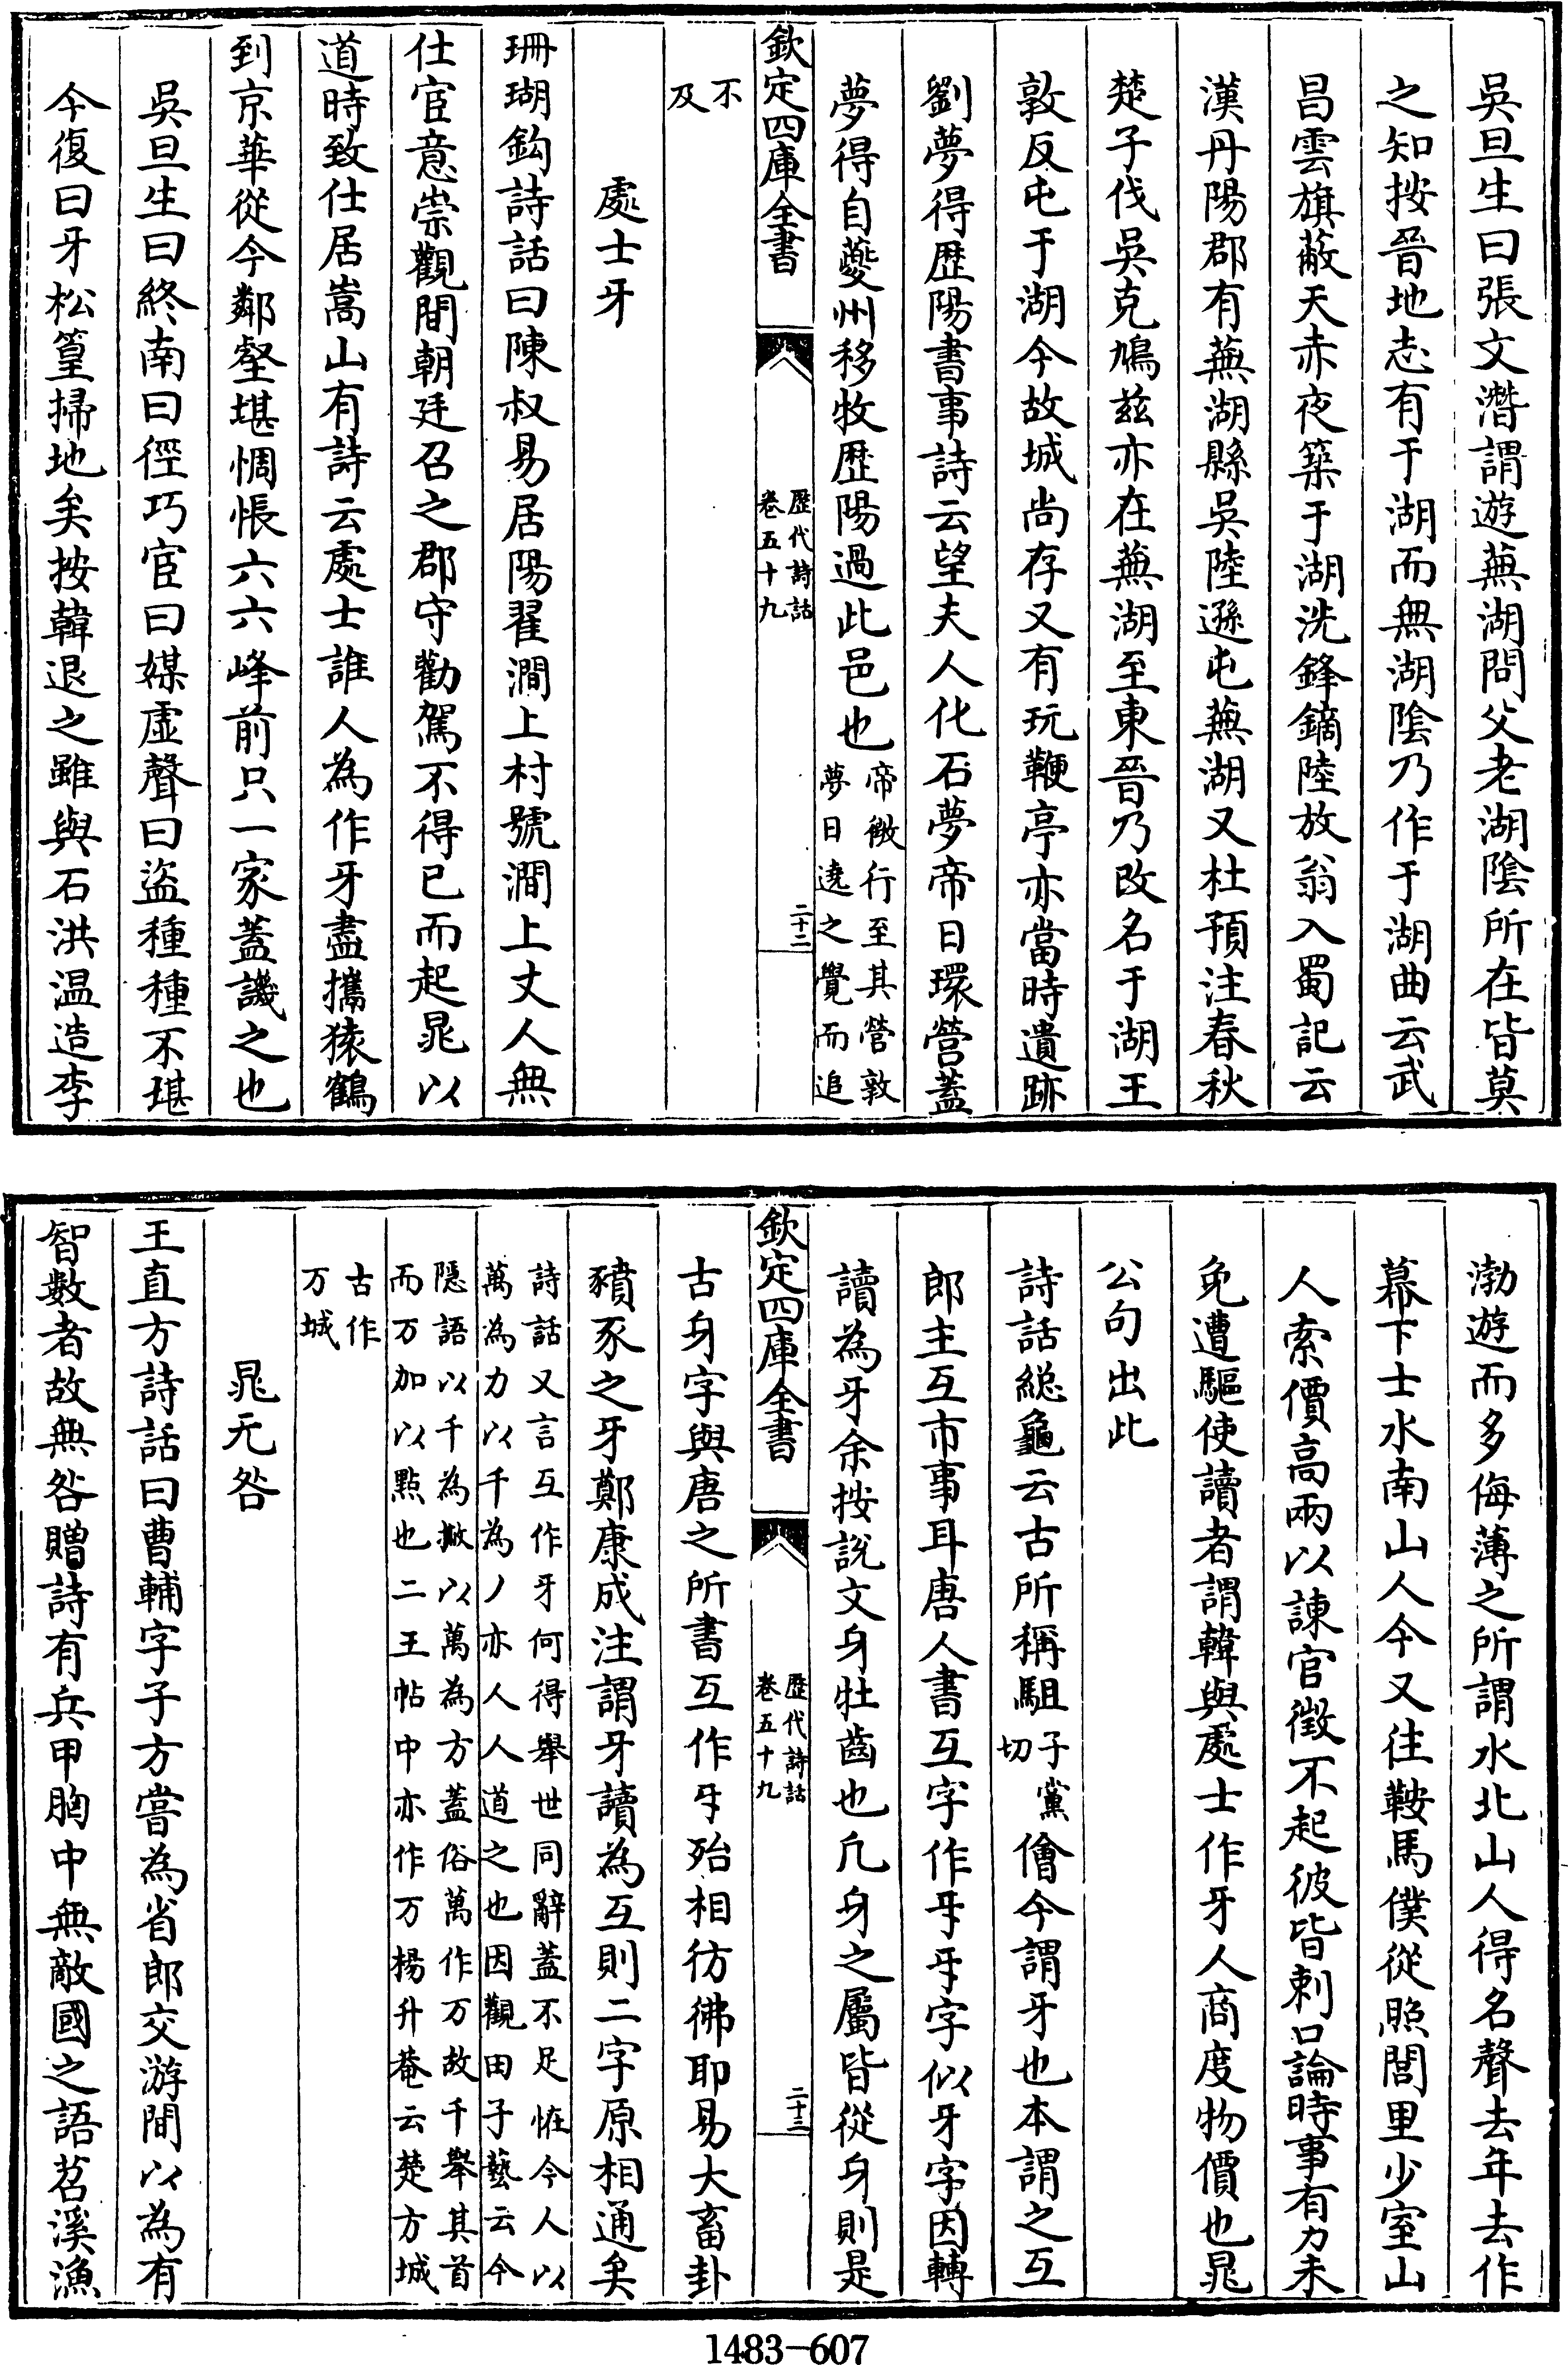 吳旦生曰張文潛謂遊蕪湖問父老湖陰所在皆莫
之知按晉地志有于湖而無湖陰乃作于湖曲云武
昌雲旗蔽天赤夜築于湖洗鋒鏑陸放翁入蜀記云
漢丹陽郡有蕪湖縣吳陸遜屯蕪湖又杜預注春秋
楚子伐吳克鳩兹亦在蕪湖至東晉乃改名于湖王
敦反屯于湖今故城尚存又有玩鞭亭亦當時遺跡
劉夢得歴陽書事詩云望夫人化石夢帝日環營蓋
夢得自夔州移牧歴陽過此邑也
帝微行至其營敦
夢日遶之覺而追
欽定四庫全書
歴代詩話
卷五十九
二十二
不
及
處士牙
珊瑚鈎詩話曰陳叔易居陽翟澗上村號澗上丈人無
仕宦意崇觀間朝廷召之郡守勸駕不得已而起晁以
道時致仕居嵩山有詩云處士誰人為作牙盡攜猿鶴
到京華從今鄰壑堪惆悵六六峰前只一家蓋譏之也
吳旦生曰終南曰徑巧宦曰媒虛聲曰盜種種不堪
今復曰牙松篁掃地矣按韓退之雖與石洪温造李
渤遊而多侮薄之所謂水北山人得名聲去年去作
幕下士水南山人今又往鞍馬僕從照閭里少室山
人索價高兩以諫官徵不起彼皆刺口論時事有力未
免遭驅使讀者謂韓與處士作牙人商度物價也晁
公句出此
詩話総龜云古所稱駔
子黨
切
儈今謂牙也本謂之互
郎主互市事耳唐人書互字作㸦㸦字似牙字因轉
讀為牙余按說文身牡齒也凡身之屬皆從身則是
欽定四庫全書
歴代詩話
卷五十九
二十三
古身字與唐之所書互作㸦殆相彷彿耶易大畜卦
豶豕之牙鄭康成注謂牙讀為互則二字原相通矣
詩話又言互作牙何得舉世同辭蓋不足恠今人以
萬為力以千為丿亦人人道之也因觀田子藝云今
隠語以千為撇以萬為方蓋俗萬作万故千舉其首
而万加以點也二王帖中亦作万楊升菴云楚方城
古作
万城
晁无咎
王直方詩話曰曹輔字子方嘗為省郎交游間以為有
智數者故無咎贈詩有兵甲胸中無敵國之語苕溪漁
1483-607